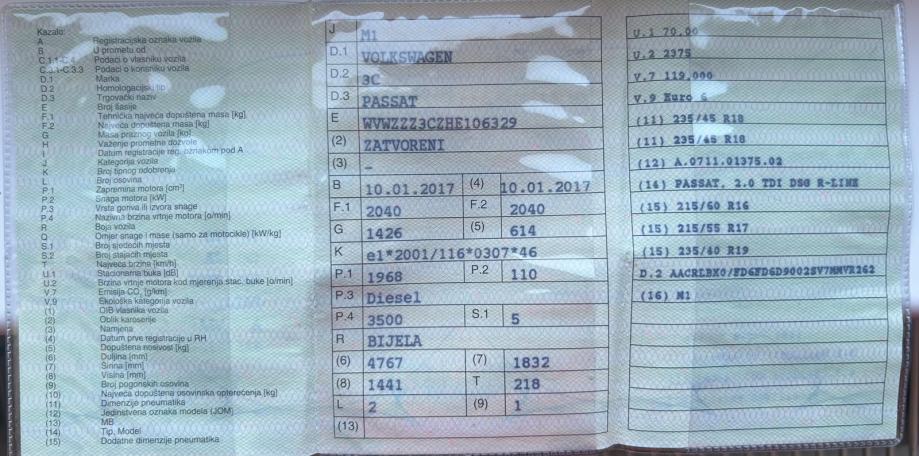 Kazalo:
A Registracijska oznaka vozila
B U prometu od
C.1.1-C.4 Podaci o vlasniku vozila
C.3.1-C.3.3 Podaci o korisniku vozila
D.1 Marka
D.2 Homologacijski tip
D.3 Trgovački naziv
E Broj šasije
F.1 Tehnička najveća dopuštena masa [kg]
F.2 Najveća dopuštena masa [kg]
G Masa praznog vozila [kg]
H Važenje prometne dozvole
I Datum registracije reg. oznakom pod A
J Kategorija vozila
K Broj tipnog odobrenja
L Broj osovina
P.1 Zapremina motora [cm³]
P.2 Snaga motora [kW]
P.3 Vrsta goriva ili izvora snage
P.4 Nazivna brzina vrtnje motora [o/min]
R Boja vozila
Q Omjer snage i mase (samo za motocikle) [kW/kg]
S.1 Broj sjedećih mjesta
S.2 Broj stajaćih mjesta
T Najveća brzina [km/h]
U.1 Stacionarna buka [dB]
U.2 Brzina vrtnje motora kod mjerenja stac. buke [o/min]
V.7 Emisija CO₂ [g/km]
V.9 Ekološka kategorija vozila
(1) OIB vlasnika vozila
(2) Oblik karoserije
(3) Namjena
(4) Datum prve registracije u RH
(5) Dopuštena nosivost [kg]
(6) Duljina [mm]
(7) Širina [mm]
(8) Visina [mm]
(9) Broj pogonskih osovina
(10) Najveća dopuštena osovinska opterećenja [kg]
(11) Dimenzije pneumatika
(12) Jedinstvena oznaka modela (JOM)
(13) MB
(14) Tip, Model
(15) Dodatne dimenzije pneumatika
J M1
D.1 VOLKSWAGEN
D.2 3C
D.3 PASSAT
E WVWZZZ3CZHE106329
(2) ZATVORENI
(3) –
B 10.01.2017 (4) 10.01.2017
F.1 2040 F.2 2040
G 1426 (5) 614
K e1*2001/116*0307*46
P.1 1968 P.2 110
P.3 Diesel
P.4 3500 S.1 5
R BIJELA
(6) 4767 (7) 1832
(8) 1441 T 218
L 2 (9) 1
(13)
U.1 70,00
U.2 2375
V.7 119,000
V.9 Euro 6
(11) 235/45 R18
(11) 235/45 R18
(12) A.0711.01375.02
(14) PASSAT, 2.0 TDI DSG R-LINE
(15) 215/60 R16
(15) 215/55 R17
(15) 235/40 R19
D.2 AACRLBX0/FD6FD6D9002SV7MMVR262
(16) M1